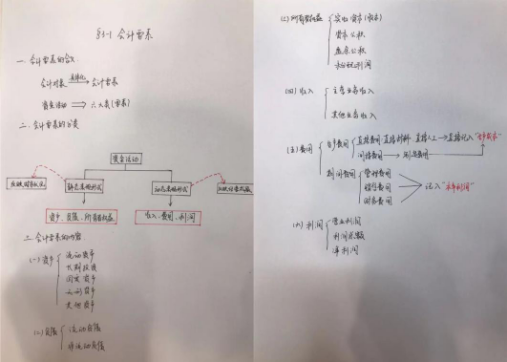 §3-1 会计要素
一. 会计要素的含义
会计对象 具体化 会计要素
资金活动 ⟹ 六大类(要素)
二. 会计要素的分类
资金活动
反映财务状况
静态表现形式
动态表现形式
反映经营成果
资产、负债、所有者权益
收入、费用、利润
三. 会计要素的内容
(一) 资产
流动资产
长期投资
固定资产
无形资产
其他资产
(二) 负债
流动负债
非流动负债
(三) 所有者权益
实收资本(股本)
资本公积
盈余公积
未分配利润
(四) 收入
主营业务收入
其他业务收入
(五) 费用
生产费用
直接费用 直接材料 直接人工 → 直接记入 "生产成本"
间接费用 → 制造费用
期间费用
管理费用
销售费用
财务费用
记入 "本年利润"
(六) 利润
营业利润
利润总额
净利润